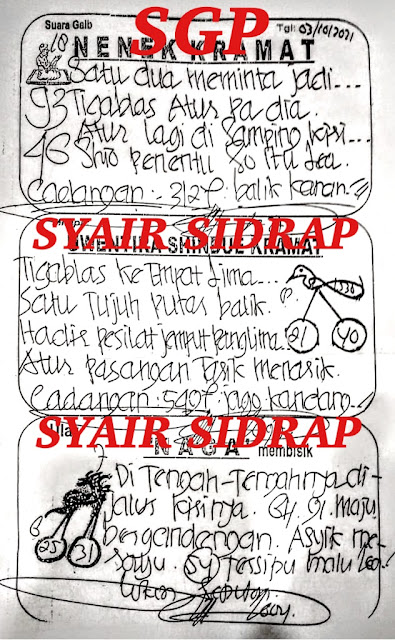 Suara Gaib
Tgl: 03/10/2021
SGP
NENEK KRAMAT
Satu dua meminta jadi...
93 Tigablas Atur pa dia.
Atur lagi di Samping kisi...
46 Shio penentu So itu dea.
Cadangan:- 312F. balik kanan.
SYAIR SIDRAP
KRAMAT
Tigablas ke Empat Lima...
Satu Tujuh putar balik.
Hadir pesilat jemput panglima.
91 40
Atur pasangan Tarik menarik.
Cadangan: 540F. jago kandang..
SYAIR SIDRAP
NAGA membisik
Di Tengah-Tengahnya di-
Jalur kisinya. 64, 91. maju
bergandengan. Asyik me-
25 31
54 Tersipu malu